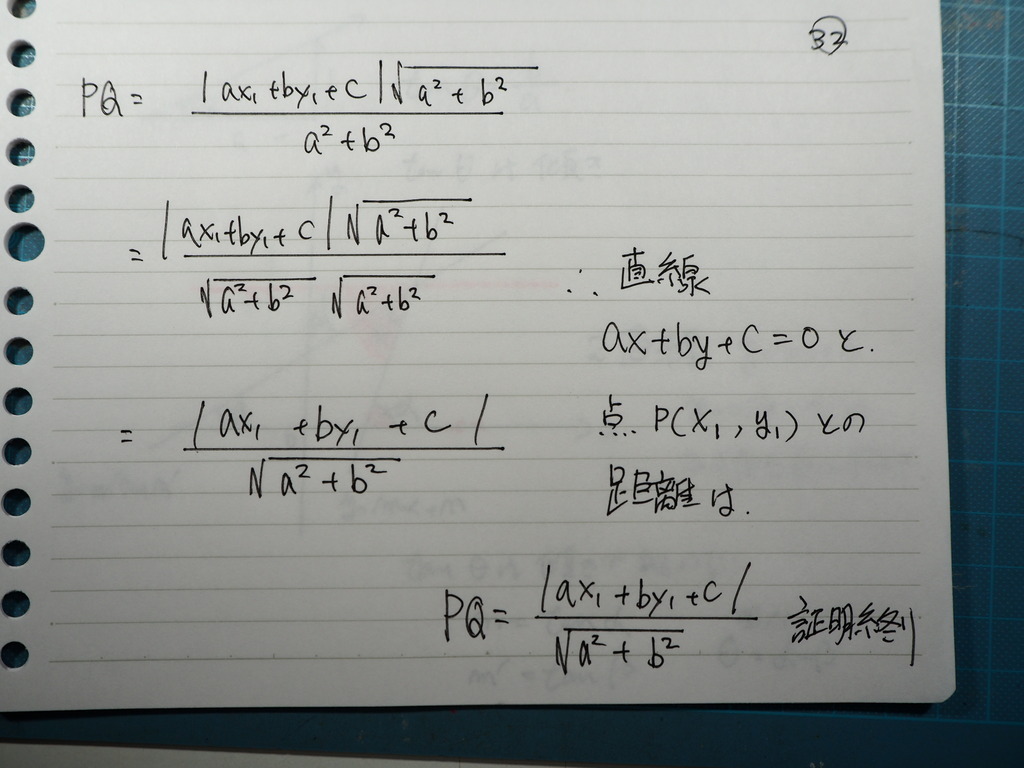 32
PQ = |ax₁+by₁+c|√(a²+b²) / (a²+b²)
= |ax₁+by₁+c|√(a²+b²) / (√(a²+b²) √(a²+b²))
= |ax₁+by₁+c| / √(a²+b²)
∴ 直線
ax+by+c=0 と.
点 P(x₁, y₁) との
距離は.
PQ = |ax₁+by₁+c| / √(a²+b²) 証明終り